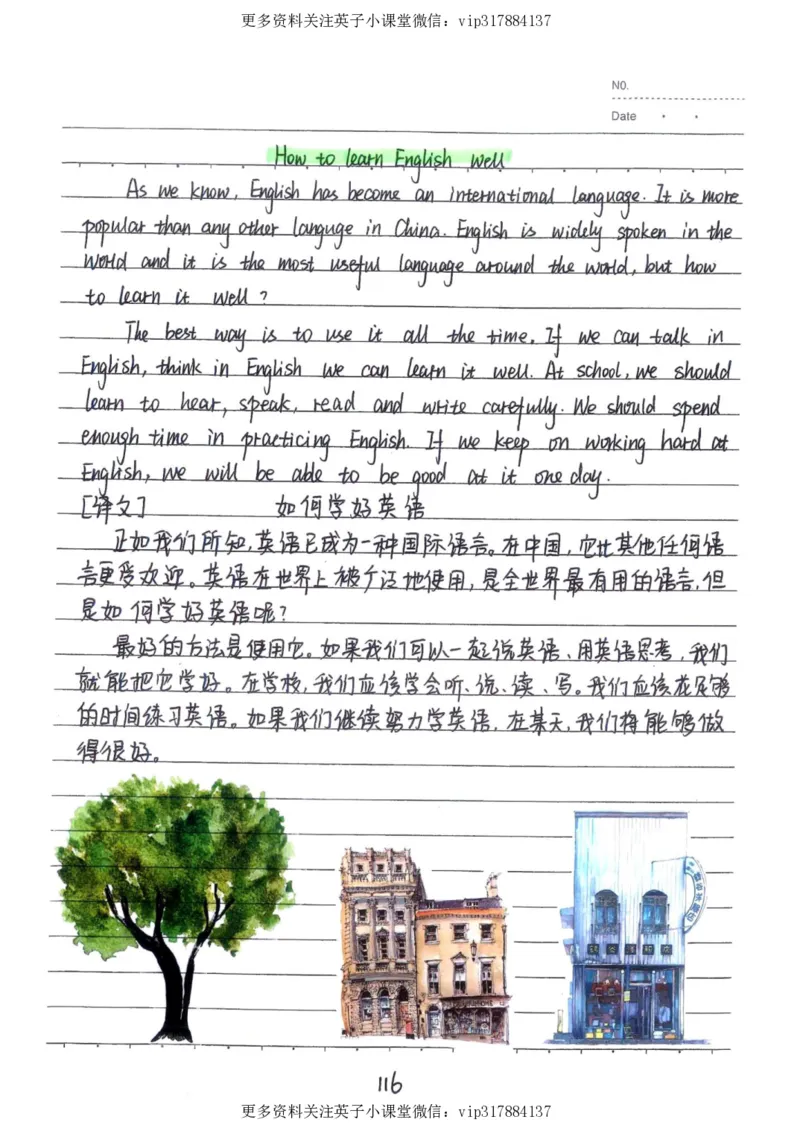 更多资料关注英子小课堂微信：vip317884137
NO.
Date
How to learn English well
As we know, English has become an international language. It is more
popular than any other languge in China. English is widely spoken in the
world and it is the most useful language around the world, but how
to learn it well?
The best way is to use it all the time. If we can talk in
English, think in English we can learn it well. At school, we should
learn to hear, speak, read and write carefully. We should spend
enough time in practicing English. If we keep on working hard at
English, we will be able to be good at it one day.
[译文] 如何学好英语
正如我们所知,英语已成为一种国际语言。在中国，它比其他任何语
言更受欢迎。英语在世界上被广泛地使用,是全世界最有用的语言,但
是如何学好英语呢?
最好的方法是使用它。如果我们可以一起说英语、用英语思考,我们
就能把它学好。在学校,我们应该学会听、说、读、写。我们应该花足够
的时间练习英语。如果我们继续努力学英语,在某天,我们将能够做
得很好。
116
更多资料关注英子小课堂微信：vip317884137